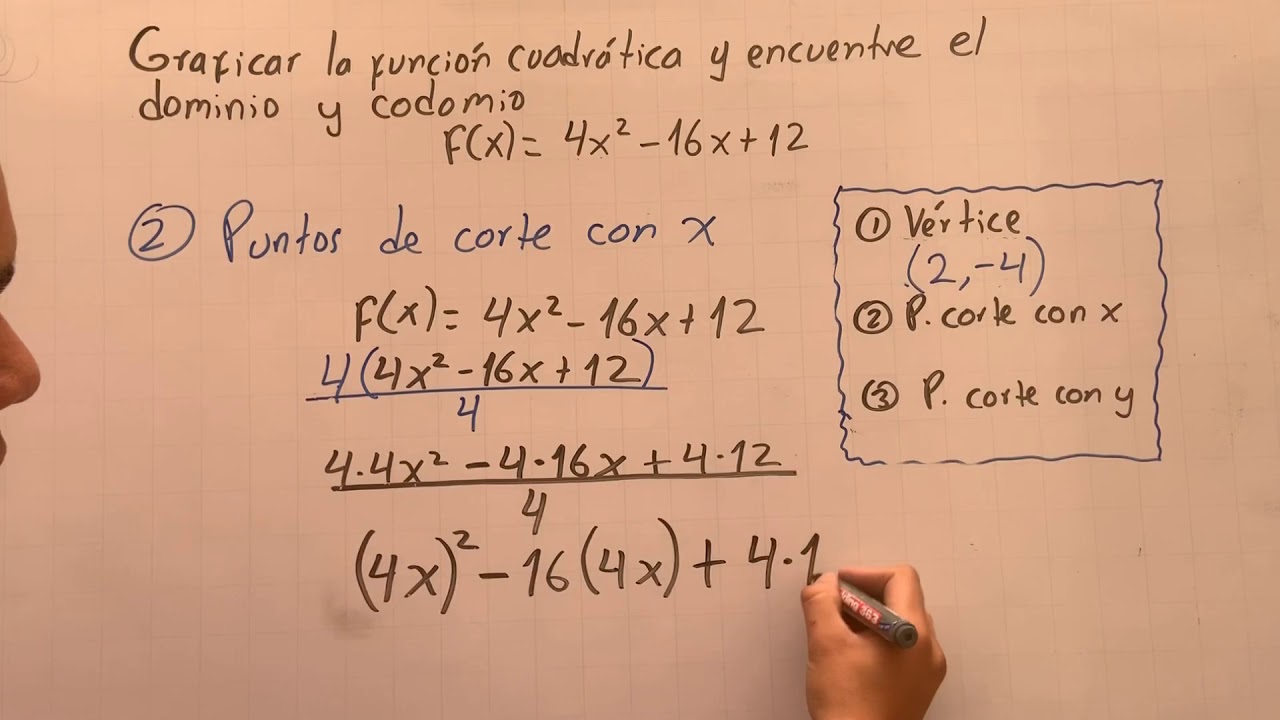 Graficar la función cuadrática y encuentre el
dominio y codomio
F(x)= 4x² - 16x + 12
② Puntos de corte con x
F(x)= 4x² - 16x + 12
4(4x² - 16x + 12)
4
4·4x² - 4·16x + 4·12
4
(4x)² - 16(4x) + 4·1
① Vértice
(2,-4)
② P. corte con x
③ P. corte con y